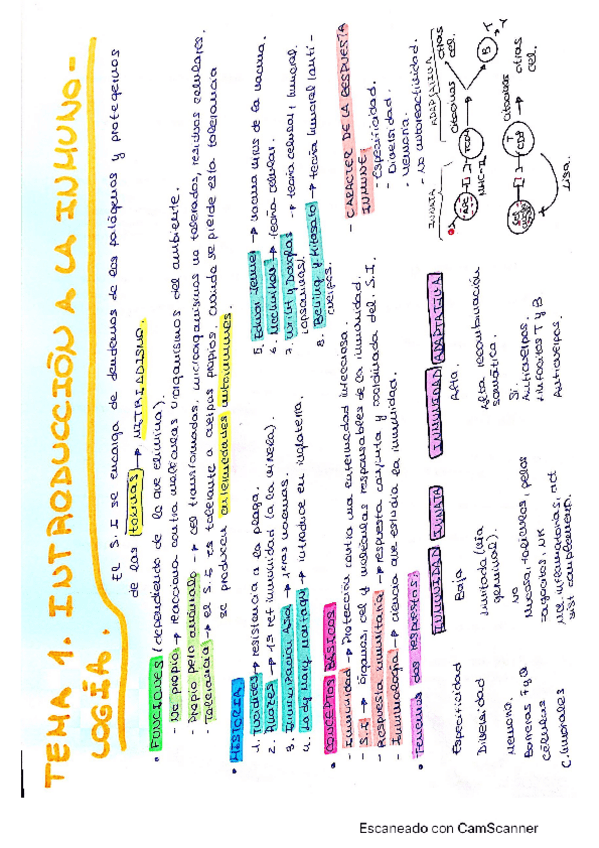 TEMA 1. INTRODUCCIÓN A LA INMUNO-
LOGÍA.
El S.I se encarga de defendernos de los patógenos y protegernos
de las toxinas → MITRIDATISMO.
• FUNCIONES (dependiendo de lo que elimina).
- No propio → reacciona contra moléculas y organismos del ambiente.
- Propio pero anómalo → cel transformadas, microorganismos no tolerados, residuos celulares.
- Tolerancia → el S.I es tolerante a cuerpos propios, cuando se pierde esta tolerancia
se producen enfermedades autoinmunes.
• HISTORIA
1. Tucídides → resistencia a la plaga.
2. Rhazes → 1ª ref inmunidad (a la viruela).
3. Inmunización Asia → 1eras vacunas.
4. Lady Mary Montagu → introduce en inglaterra.
5. Edward Jenner → vacuna virus de la vacuna.
6. Mechnikov → teoría celular.
7. Wright y Douglas → teoría celular y humoral
(opsoninas).
8. Behring y Kitasato → teoría humoral (anti-
cuerpos).
• CONCEPTOS BÁSICOS
- Inmunidad → Protección contra una enfermedad infecciosa.
- S.I → Órganos, cel y moléculas responsables de la inmunidad.
- Respuesta inmunitaria → respuesta conjunta y coordinada del S.I.
- Inmunología → ciencia que estudia la inmunidad.
- CARÁCTER DE LA RESPUESTA
INMUNE:
- Especificidad.
- Diversidad.
- Memoria.
- No autorreactividad.
• Tenemos dos respuestas:
INMUNIDAD INNATA INMUNIDAD ADAPTATIVA
Especificidad Baja Alta.
Diversidad Limitada (vía germinal). Alta recombinación somática.
Memoria. No Sí.
Barreras F y Q Mucosa, moléculas, pelos Anticuerpos.
Células Fagocitos, NK Linfocitos T y B
C. humorales Mol. inflamatorias, act sist complemento. Anticuerpos.
INNATA ADAPTATIVA
APC MHC-II TCD4 citocinas otras cel.
B
TCD8 citocinas otras cel.
Lisa.
Escaneado con CamScanner